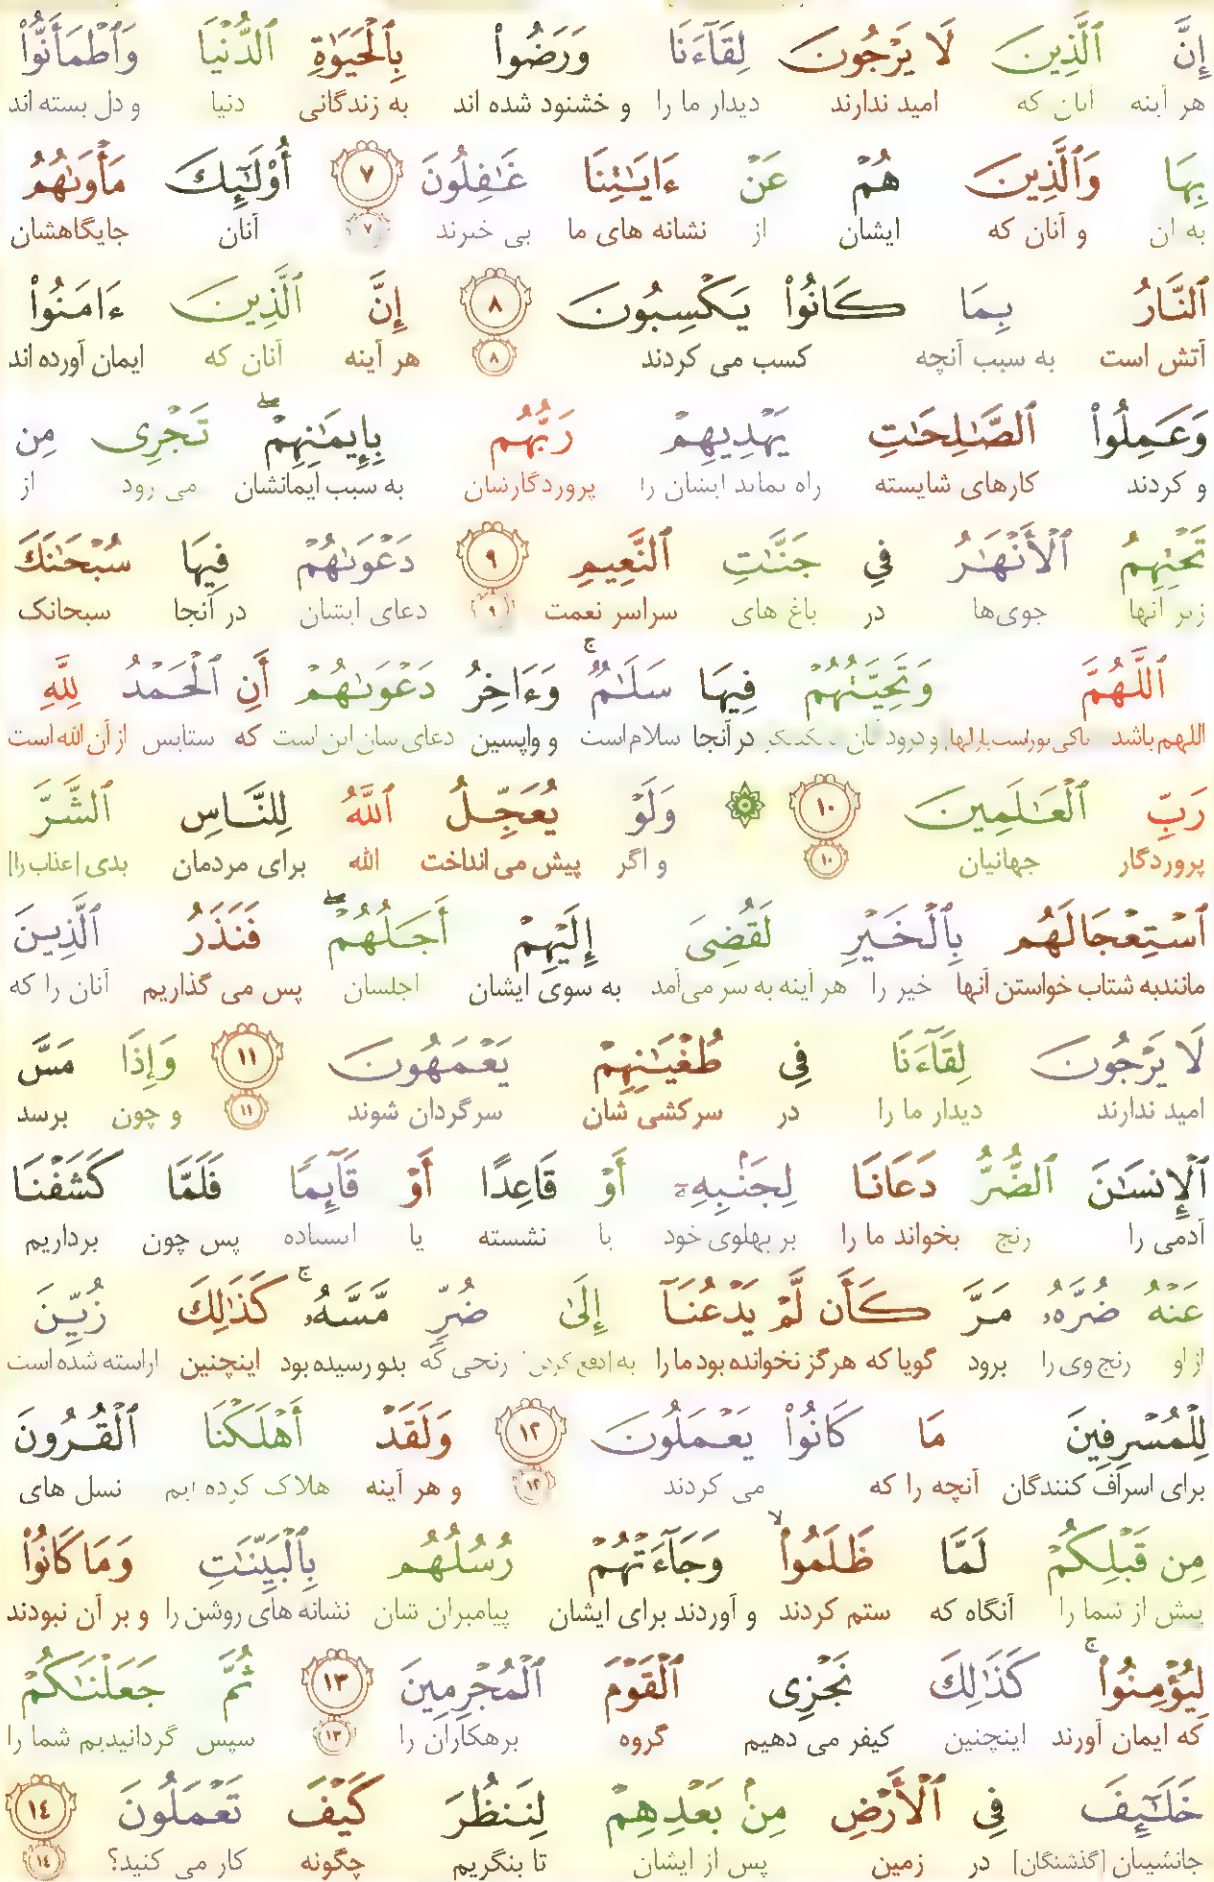 إِنَّ ٱلَّذِينَ لَا يَرْجُونَ لِقَآءَنَا وَرَضُوا۟ بِٱلْحَيَوٰةِ ٱلدُّنْيَا وَٱطْمَأَنُّوا۟
هر آینه آنان که امید ندارند دیدار ما را و خشنود شده اند به زندگانی دنیا و دل بسته اند
بِهَا وَٱلَّذِينَ هُمْ عَنْ ءَايَـٰتِنَا غَـٰفِلُونَ ٧ أُو۟لَـٰٓئِكَ مَأْوَىٰهُمُ
به آن و آنان که ایشان از نشانه های ما بی خبرند ٧ آنان جایگاهشان
ٱلنَّارُ بِمَا كَانُوا۟ يَكْسِبُونَ ٨ إِنَّ ٱلَّذِينَ ءَامَنُوا۟
آتش است به سبب آنچه کسب می کردند ٨ هر آینه آنان که ایمان آورده اند
وَعَمِلُوا۟ ٱلصَّـٰلِحَـٰتِ يَهْدِيهِمْ رَبُّهُم بِإِيمَـٰنِهِمْ ۖ تَجْرِى مِن
و کردند کارهای شایسته راه نماید ایشان را پروردگارشان به سبب ایمانشان می رود از
تَحْتِهِمُ ٱلْأَنْهَـٰرُ فِى جَنَّـٰتِ ٱلنَّعِيمِ ٩ دَعْوَىٰهُمْ فِيهَا سُبْحَـٰنَكَ
زیر آنها جوی‌ها در باغ های سراسر نعمت ٩ دعای ایشان در آنجا سبحانک
ٱللَّهُمَّ وَتَحِيَّتُهُمْ فِيهَا سَلَـٰمٌ ۚ وَءَاخِرُ دَعْوَىٰهُمْ أَنِ ٱلْحَمْدُ لِلَّهِ
اللهم باشد در آنجا سلام است و واپسین دعای شان این است که ستایش از آن الله است
رَبِّ ٱلْعَـٰلَمِينَ ١٠ ۞ وَلَوْ يُعَجِّلُ ٱللَّهُ لِلنَّاسِ ٱلشَّرَّ
پروردگار جهانیان ١٠ و اگر پیش می انداخت الله برای مردمان بدی [عذاب را]
ٱسْتِعْجَالَهُم بِٱلْخَيْرِ لَقُضِىَ إِلَيْهِمْ أَجَلُهُمْ ۖ فَنَذَرُ ٱلَّذِينَ
مانندبه شتاب خواستن آنها خیر را هر آینه به سر می‌آمد به سوی ایشان اجلشان پس می گذاریم آنان را که
لَا يَرْجُونَ لِقَآءَنَا فِى طُغْيَـٰنِهِمْ يَعْمَهُونَ ١١ وَإِذَا مَسَّ
امید ندارند دیدار ما را در سرکشی شان سرگردان شوند ١١ و چون برسد
ٱلْإِنسَـٰنَ ٱلضُّرُّ دَعَانَا لِجَنۢبِهِۦٓ أَوْ قَاعِدًا أَوْ قَآئِمًا فَلَمَّا كَشَفْنَا
آدمی را رنج بخواند ما را بر پهلوی خود یا نشسته یا ایستاده پس چون برداریم
عَنْهُ ضُرَّهُۥ مَرَّ كَأَن لَّمْ يَدْعُنَآ إِلَىٰ ضُرٍّ مَّسَّهُۥ ۚ كَذَٰلِكَ زُيِّنَ
از او رنج وی را برود گویا که هرگز نخوانده بود ما را به [دفع کردن] رنجی که بدو رسیده بود اینچنین آراسته شده است
لِلْمُسْرِفِينَ مَا كَانُوا۟ يَعْمَلُونَ ١٢ وَلَقَدْ أَهْلَكْنَا ٱلْقُرُونَ
برای اسراف کنندگان آنچه را که می کردند ١٢ و هر آینه هلاک کرده ایم نسل های
مِن قَبْلِكُمْ لَمَّا ظَلَمُوا۟ ۙ وَجَآءَتْهُمْ رُسُلُهُم بِٱلْبَيِّنَـٰتِ وَمَا كَانُوا۟
پیش از شما را آنگاه که ستم کردند و آوردند برای ایشان پیامبران شان نشانه های روشن را و بر آن نبودند
لِيُؤْمِنُوا۟ ۚ كَذَٰلِكَ نَجْزِى ٱلْقَوْمَ ٱلْمُجْرِمِينَ ١٣ ثُمَّ جَعَلْنَـٰكُمْ
که ایمان آورند اینچنین کیفر می دهیم گروه بزهکاران را ١٣ سپس گردانیدیم شما را
خَلَـٰٓئِفَ فِى ٱلْأَرْضِ مِنۢ بَعْدِهِمْ لِنَنظُرَ كَيْفَ تَعْمَلُونَ ١٤
جانشینان [گذشتگان] در زمین پس از ایشان تا بنگریم چگونه کار می کنید؟ ١٤